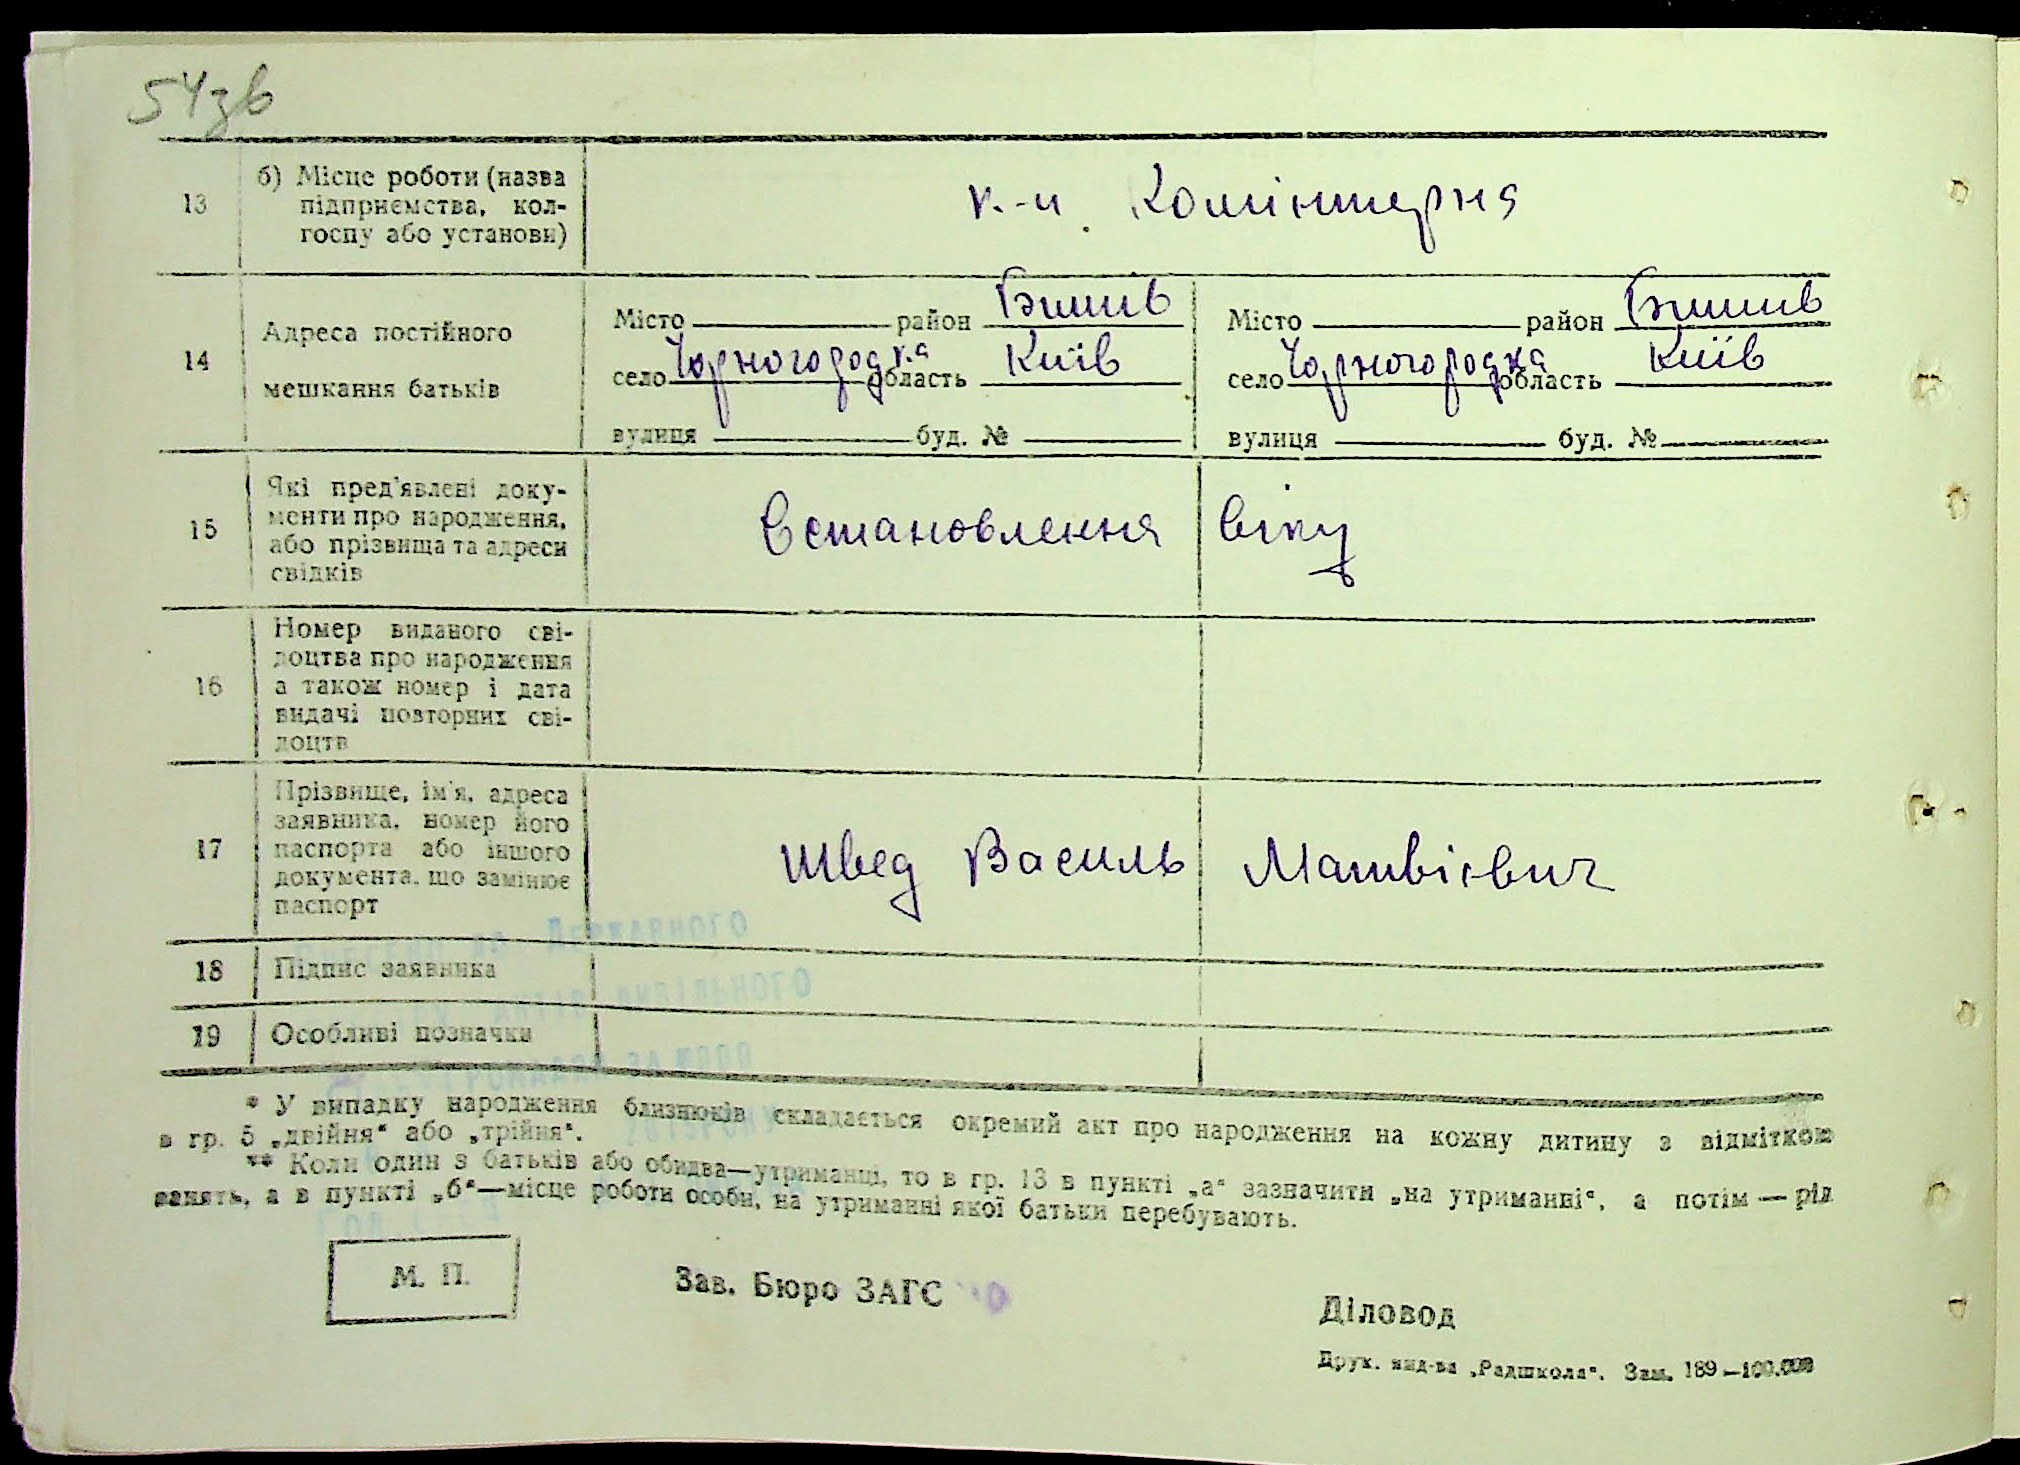 54зв
13
б) Місце роботи (назва
підприємства, кол-
госпу або установи)
к-п. Комінтерна
14
Адреса постійного
мешкання батьків
Місто район Бишів
село Чорногородка область Київ
вулиця буд. №
Місто район Бишів
село Чорногородка область Київ
вулиця буд. №
15
Які пред'явлені доку-
менти про народження,
або прізвища та адреси
свідків
Встановлення віку
16
Номер виданого сві-
доцтва про народження
а також номер і дата
видачі повторних сві-
доцтв
17
Прізвище, ім'я, адреса
заявника, номер його
паспорта або іншого
документа, що замінює
паспорт
Швед Василь Матвієвич
18 Підпис заявника
19 Особливі позначки
* У випадку народження близнюків складається окремий акт про народження на кожну дитину з відміткою
в гр. 5 „двійня“ або „трійня“.
** Коли один з батьків або обидва—утриманці, то в гр. 13 в пункті „а“ зазначити „на утриманні“, а потім — рід
занять, а в пункті „б“—місце роботи особи, на утриманні якої батьки перебувають.
М. П.
Зав. Бюро ЗАГС
Діловод
Друк. вид-ва „Радшкола“. Зам. 189—100.000